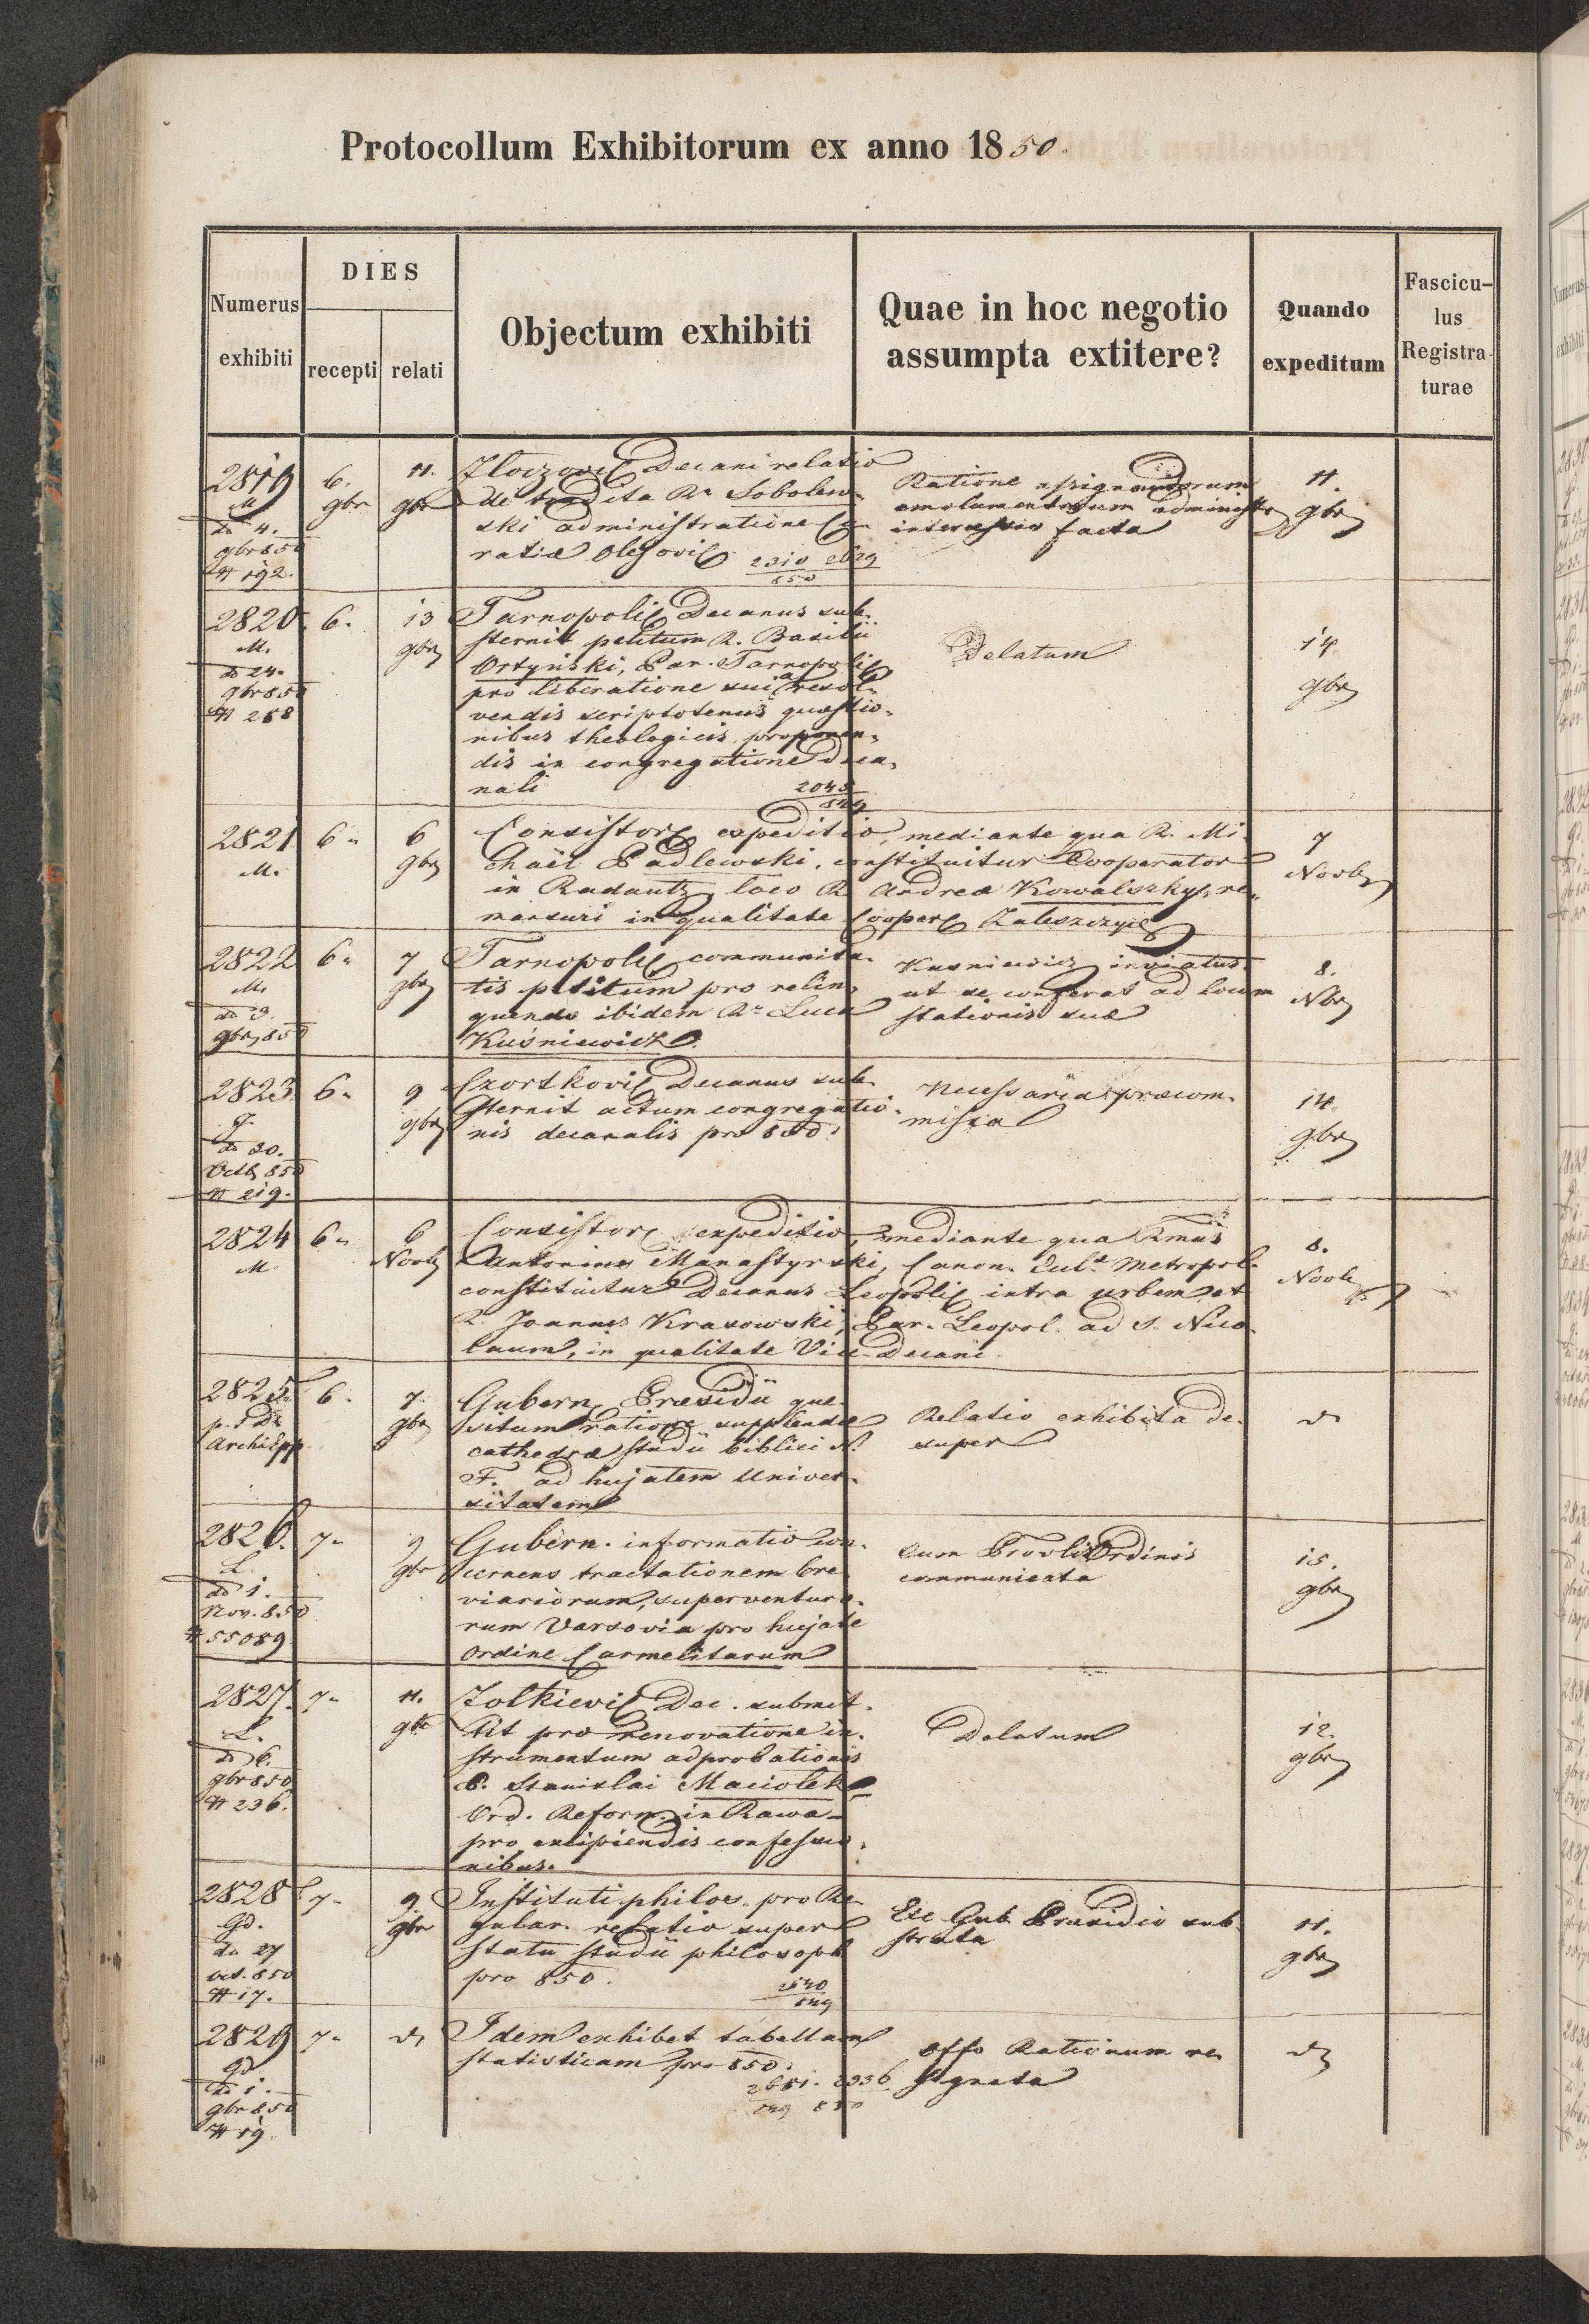 Protocollum Exhibitorum ex anno 1850.
Numerus exhibiti
DIES
recepti
relati
Objectum exhibiti
Quae in hoc negotio
assumpta extitere?
Quando
expeditum
Fascicu-
lus
Registra-
turae
2819
M
dd 4.
9br 850
N 192.
6.
9br
11.
9br
Decani relatio
de tradita Rn Sobolew-
ski administratione Cu-
ratiæ
2310 2629
850
Ratione assignandorum
emolumentorum
intercessio facta
11.
9br
2820.
M.
dd 24.
9br 850
N 268
6.
13
9br
Tarnopoli Decanus sub-
sternit petitum R. Basilii
Ortyński, Par. Tarnopoli
pro liberatione sui a resol-
vendis scriptotenus quæstio-
nibus theologicis proponen-
dis in congregatione deca-
nali
2048
849
Delatum
14
9br
2821
M.
6 "
6
9br
Consistor expeditio, mediante qua R. Mi-
chäel Padlewski, constituitur Cooperator
in Radautz loco R. Andreæ Kowalszky, re-
mansuri in qualitate Cooper Zaleszczyc
7
Novb
2822
M.
dd 3.
9br 850
6 "
7
9br
Tarnopoli communita-
tis petitum pro relin-
quendo ibidem Rn Luca
Kuśniewicz
Kusniewicz inviatus
ut se conferat ad locum
stationis suæ
8.
Nbr
2823.
J
dd 30.
Octb 850
N 219.
6 "
9
9br
Czortkovi Decanus sub-
sternit actum congregatio-
nis decanalis pro 850.
Necessaria præcom-
missa
14
9br
2824
M
6 "
6
Novb
Consistor expeditio, mediante qua Rmus
Antonius Manastyrski, Canon. Metropol.
constituitur Decanus Leopoli intra urbem et
R. Joannes Krasowski, Par. Leopol. ad S. Nico-
laum, in qualitate Vice-Decani.
8.
Novb
2825.
ArchiEpp
6.
7.
9br
Gubern Præsidii quæ-
situm ratione supplendæ
cathedræ studii biblici N.
F. ad hujatem Univer-
sitatem
Relatio exhibita de-
super
2826.
L.
dd 1.
Nov. 850
N 55089
7 "
9
9br
Gubern. informatio con-
cernens tractationem bre-
viariorum, superventuro-
rum Varsovia pro hujate
Ordine Carmelitarum
Cum Ordinis
communicata
15.
9br
2827.
L.
dd 6.
9br 850
N 236.
7 "
11.
9br
Zolkievi Dec. submit-
tit pro renovatione in-
strumentum adprobationis
P. Stanislai Maciolek
Ord. Reform. in Rawa
pro excipiendis confessio-
nibus.
Delatum
12.
9br
2828
Gd.
dd 27
oct. 850
N 17.
7 "
9.
9br
Instituti philos. pro Re-
gular. relatio super
statu studii philosoph
pro 850.
849
Exc Gub. Præsidio sub-
strata
11.
9br
2829
Gd.
dd 1.
9br 850
N 19.
7 "
Idem exhibet tabellam
statisticam pro 850.
2651. 2336
849 850
Offo Rationum re-
signata